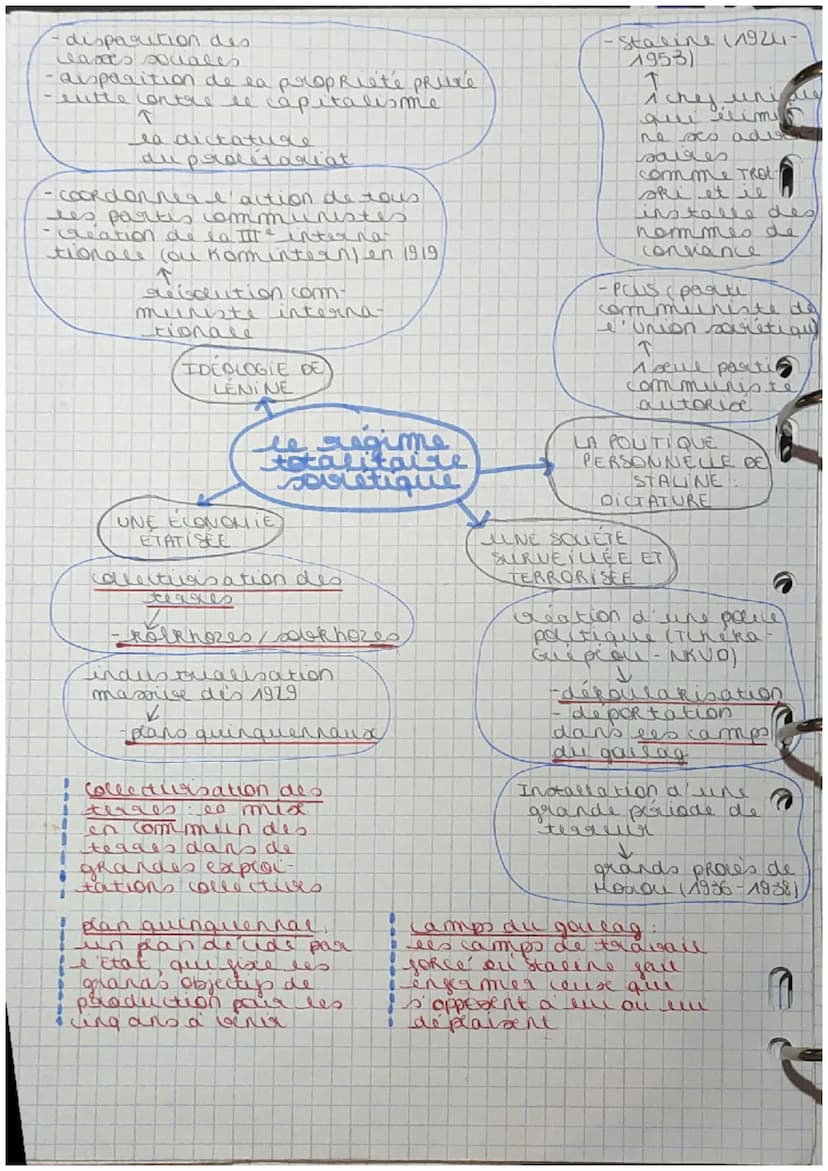 - disparition des
classes sociales
- disparition de la propriété privée
- lutte contre le capitalisme
↑
la dictature
du prolétariat
- coordonner l'action de tous
les partis communistes
- création de la IIIe interna-
tionale (ou Komintern) en 1919
↑
révolution com-
muniste interna-
tionale
IDÉOLOGIE DE
LÉNINE
- Staline (1924-
1953)
↑
1 chef unique
qui élimi-
ne ses adver
saires
comme TROT
SKI et il
installe des
hommes de
confiance
- PCUS (parti
communiste de
l'union soviétique)
↑
1 seul parti
communiste
autorisé
LA POLITIQUE
PERSONNELLE DE
STALINE :
DICTATURE
le régime
totalitaire
soviétique
UNE ÉCONOMIE
ÉTATISÉE
collectivisation des
terres
- kolkhozes / sovkhozes
industrialisation
massive dès 1929
- plans quinquennaux
UNE SOCIÉTÉ
SURVEILLÉE ET
TERRORISÉE
création d'une police
politique (TCHÉKA -
Guépéou - NKVD)
- dékoulakisation
- déportation
dans les camps
du goulag
Installation d'une
grande période de
terreur
grands procès de
Moscou (1936-1938)
collectivisation des
terres : la mise
en commun des
terres dans de
grandes exploi-
tations collectives
plan quinquennal :
un plan décidé par
l'état, qui fixe les
grands objectifs de
production pour les
cinq ans à venir
camps du goulag :
les camps de travail
forcé où Staline fait
enfermer ceux qui
s'opposent à lui ou lui
déplaisent